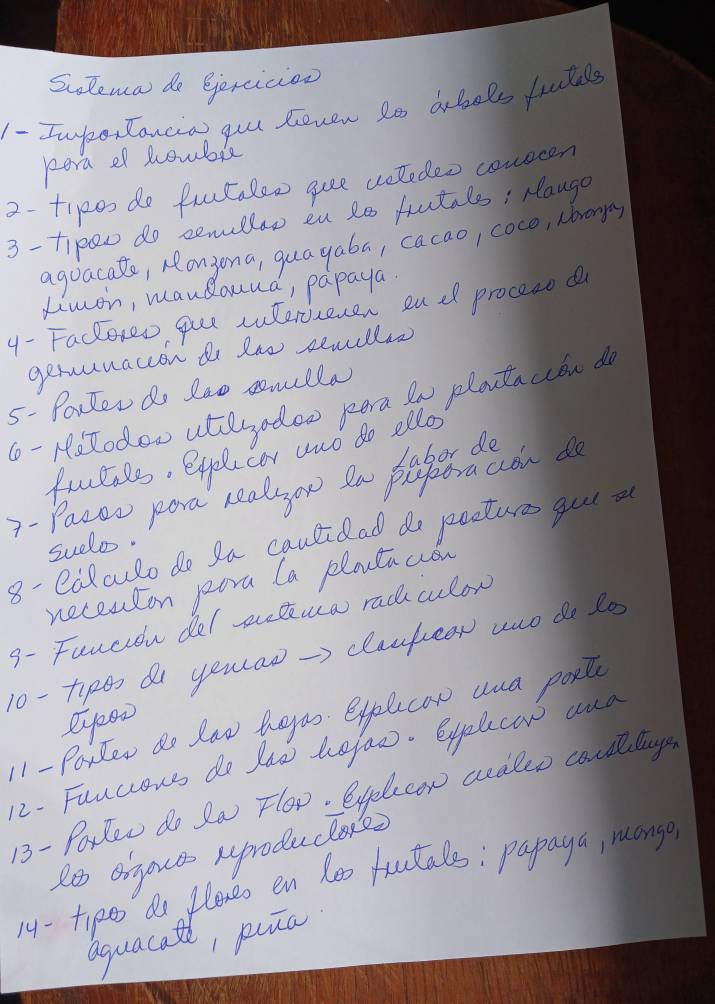 Sistema de Ejercicios
1- Importancia que tienen los árboles frutales
para el hombre
2- tipos de frutales que ustedes conocen
3- tipos de semillas en los frutales: Mango
aguacate, Manzana, guayaba, cacao, coco, Naranja,
Limón, mandarina, papaya.
4- Factores que intervienen en el proceso de
germinación de las semillas
5- Partes de las semilla
6- Métodos utilizados para la plantación de
frutales. Explicar uno de ellos
7- Pasos para realizar la labor de preparación de
suelos.
8- Cálculo de la cantidad de posturas que se
necesitan para la plantación
9- Función del sistema radicular
10- tipos de yemas → clasificar uno de los
tipos
11- Partes de las hojas. Explicar una parte
12- Funciones de las hojas. Explicar una
13- Partes de la Flor. Explicar cuáles constituyen
los órganos reproductores
14- tipos de flores en los frutales: papaya, mango,
aguacate, piña.